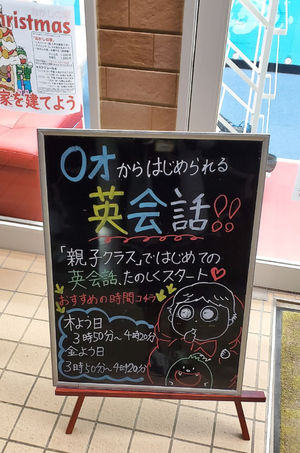 Christmas
家を建てよう
0才からはじめられる
英会話!!
「親子クラス」ではじめての
英会話、たのしくスタート♥
おすすめの時間コチラ
木よう日
3時50分〜4時20分
金よう日
3時50分〜4時20分